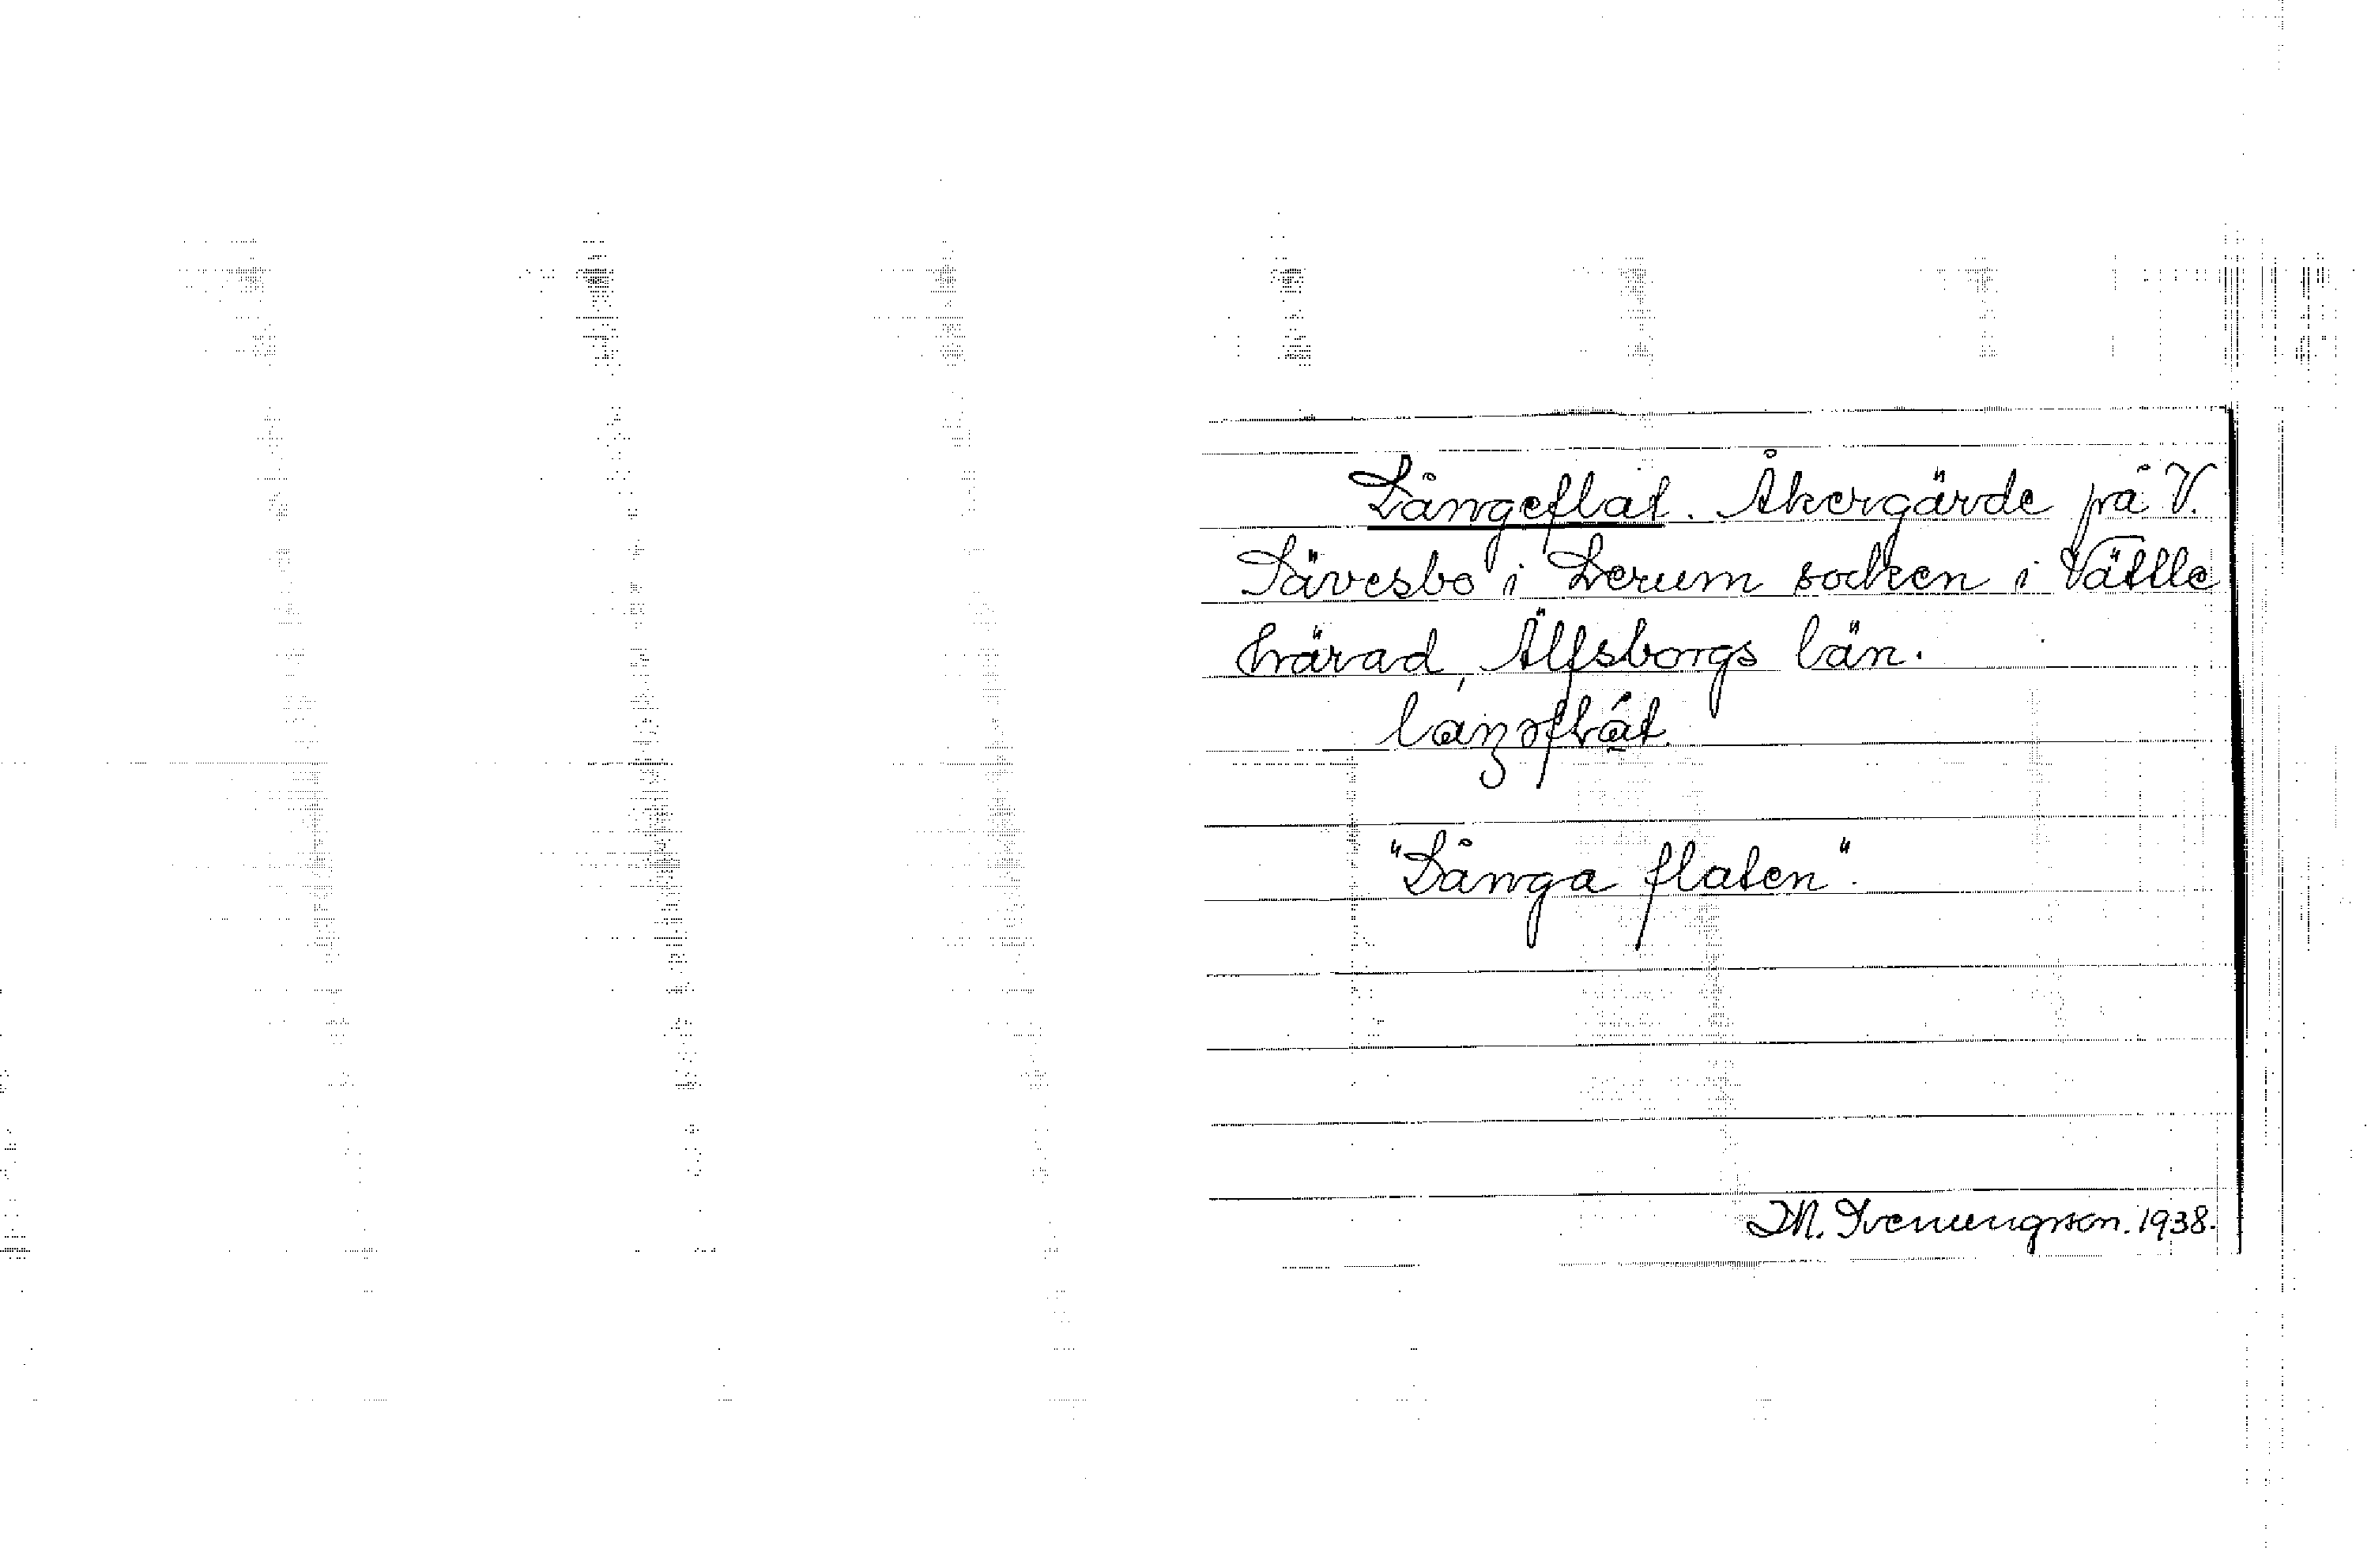 Långeflat. Åkergärde på V.
Sävesbo i Lerum socken i Vättle
härad, Älfsborgs län.
"Långa flaten".
I.M. Svenungsson. 1938.